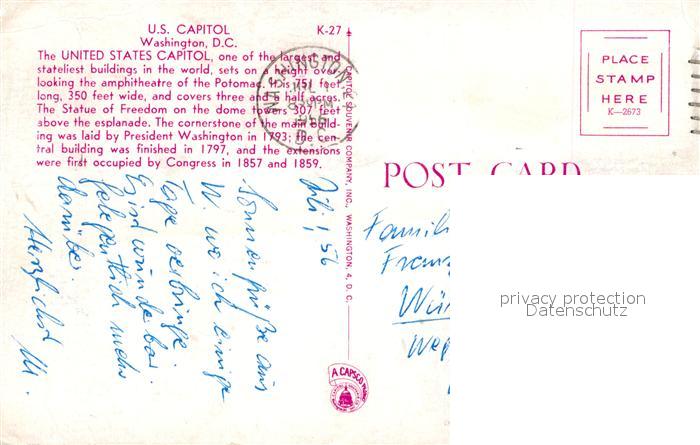 U.S. CAPITOL
Washington, D.C.
K-27
The UNITED STATES CAPITOL, one of the largest and
stateliest buildings in the world, sets on a height over-
looking the amphitheatre of the Potomac. It is 751 feet
long, 350 feet wide, and covers three and a half acres.
The Statue of Freedom on the dome towers 307 feet
above the esplanade. The cornerstone of the main build-
ing was laid by President Washington in 1793; the cen-
tral building was finished in 1797, and the extensions
were first occupied by Congress in 1857 and 1859.
WASHINGTON
1956
D.C.
CAPITOL SOUVENIR COMPANY, INC., WASHINGTON, 4, D. C.
PLACE
STAMP
HERE
K-2673
POST CARD
Juli, 56
Sonnengrüße aus
W. wo ich einige
Tage verbringe.
wunderbar.
gelegentlich mehr
darüber.
Herzlichst
Famili
Franz
Wü
A CAPSCO
privacy protection
Datenschutz